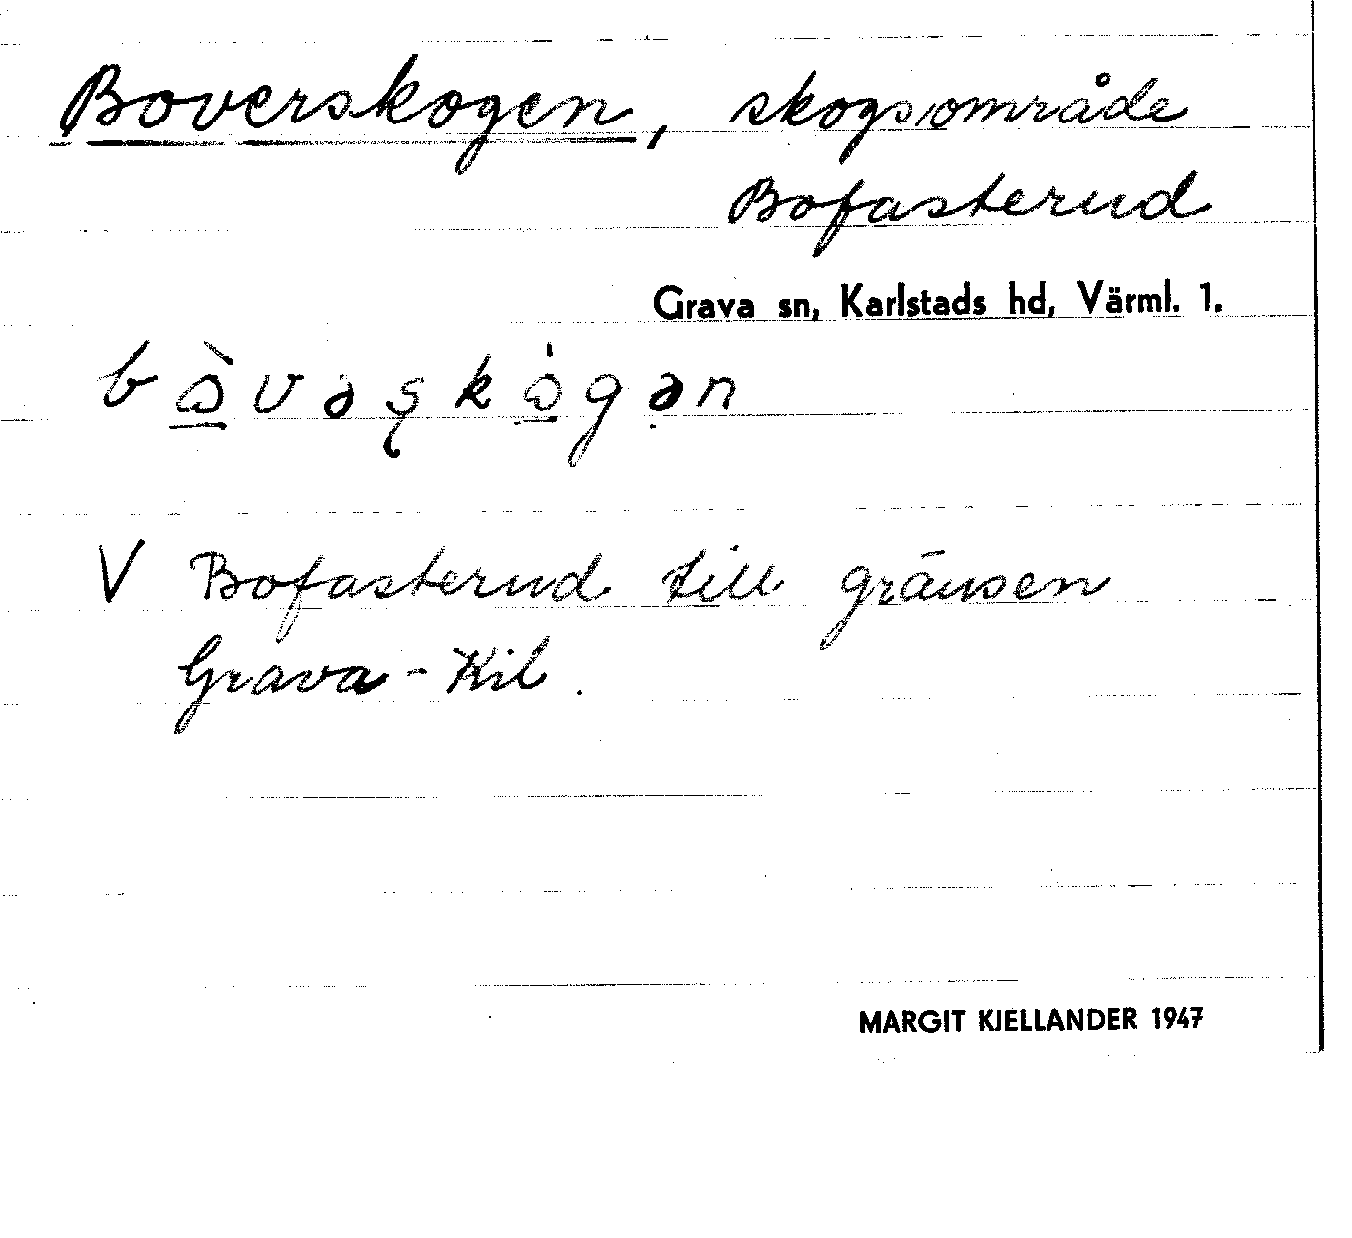 Boverskogen, skogsområde
Bofasterud
Grava sn, Karlstads hd, Värml. 1.
V Bofasterud till gränsen
Grava - Kil.
MARGIT KJELLANDER 1947